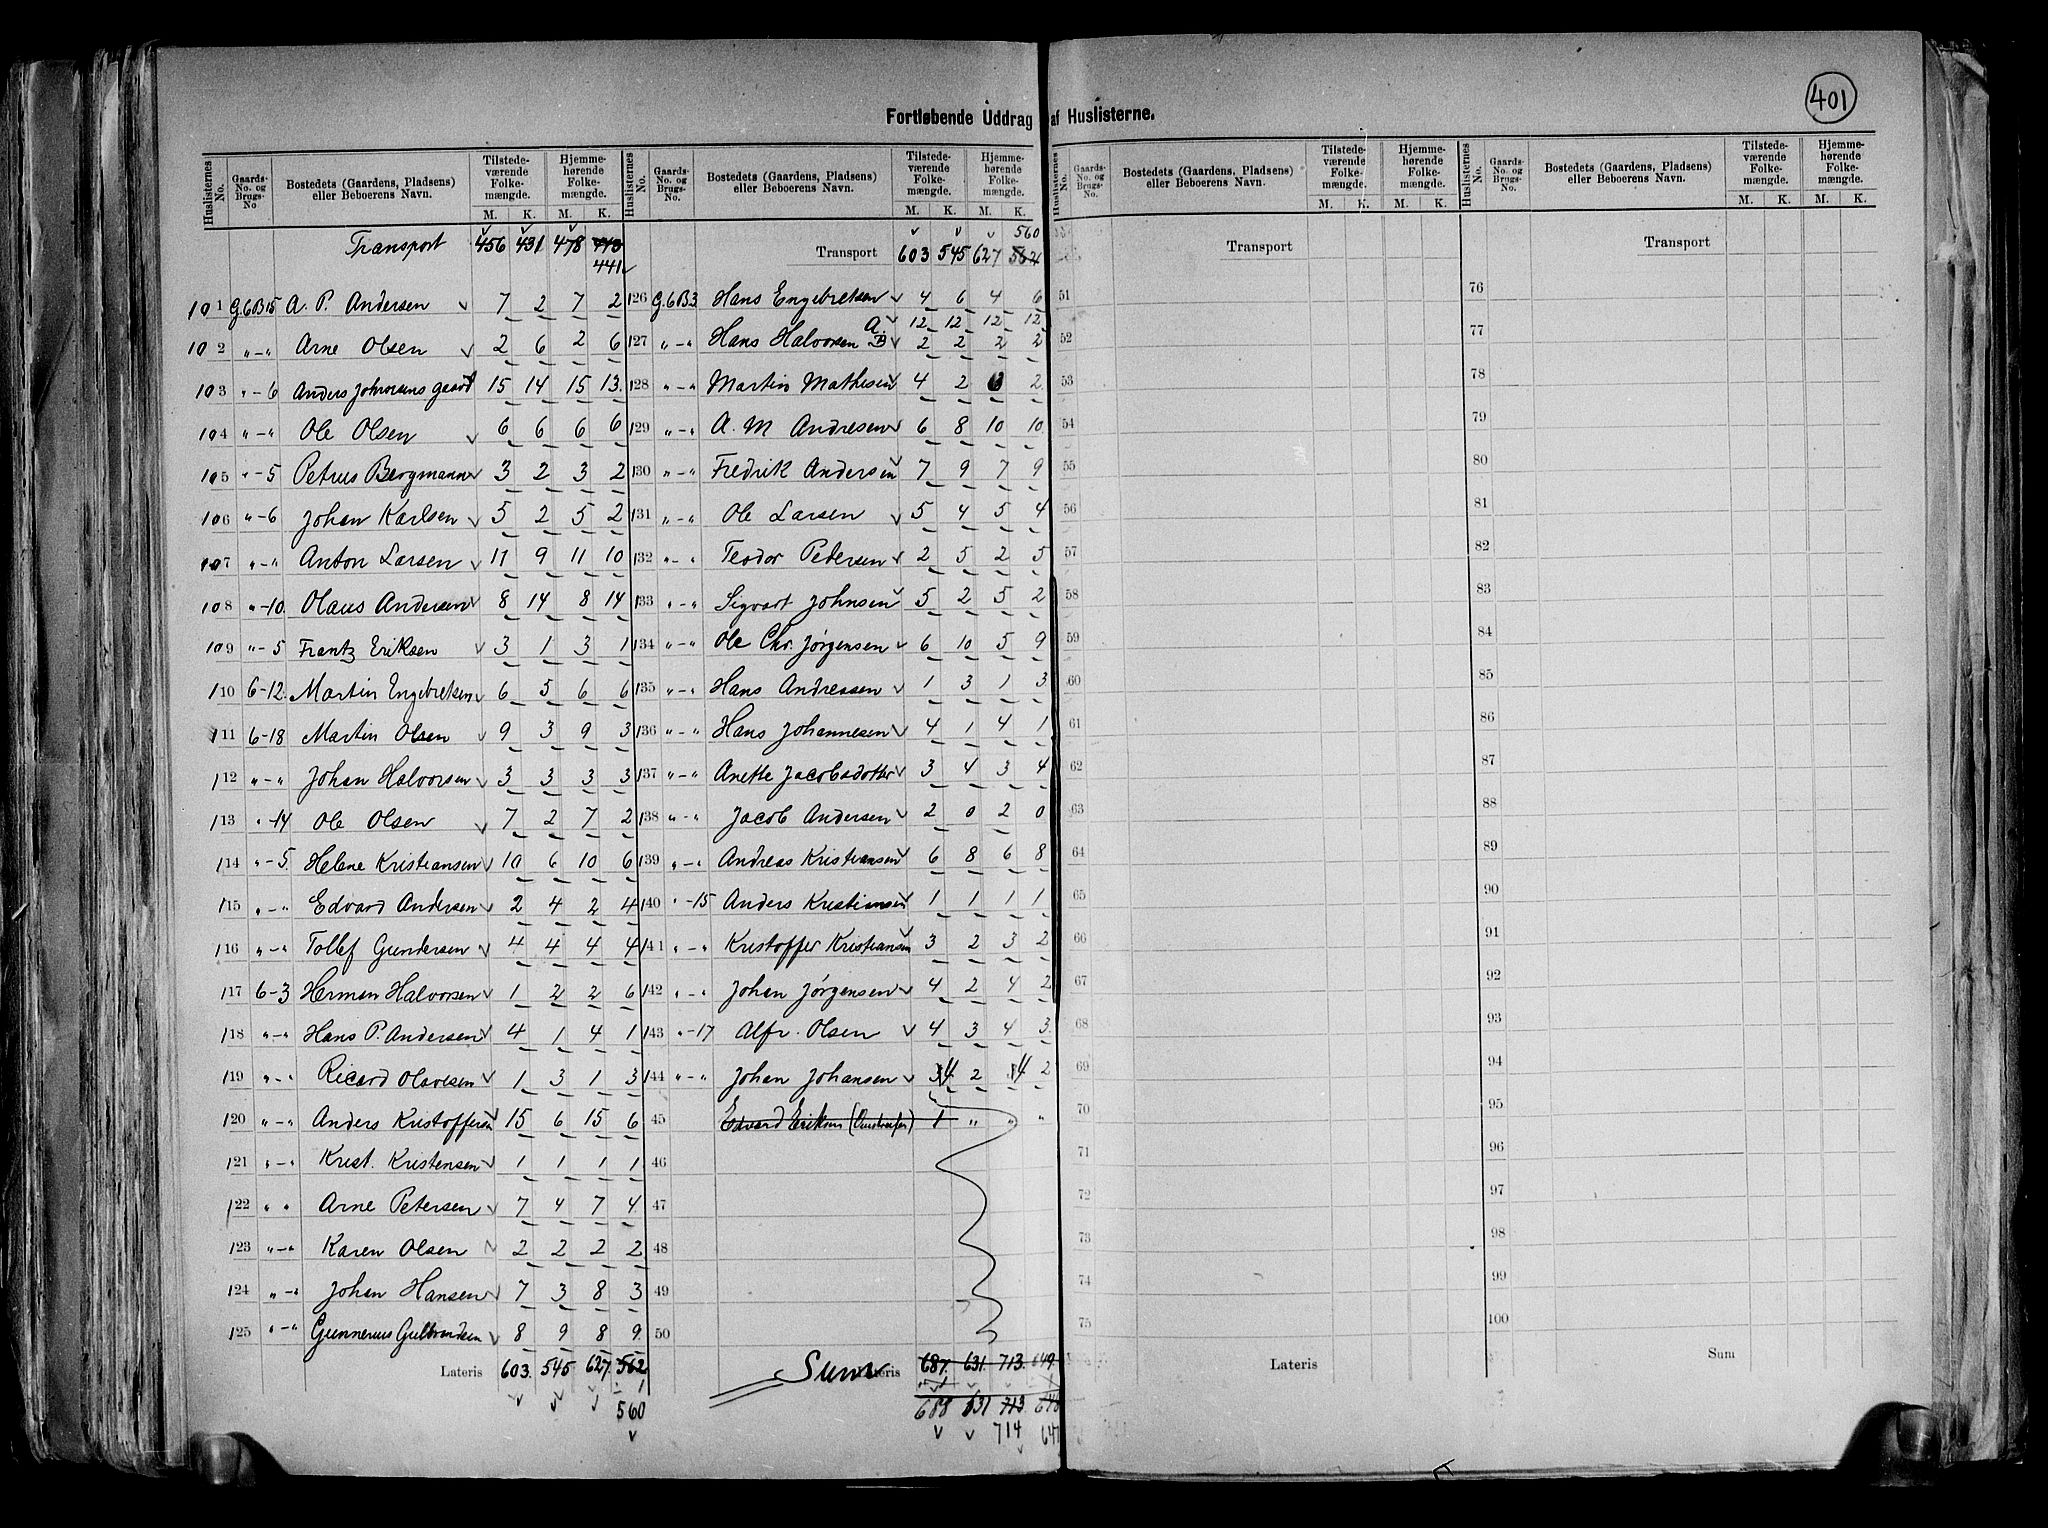 401
Fortløbende Uddrag af Huslisterne.
Huslisternes No. | Gaards-No. og Brugs-No | Bostedets (Gaardens, Pladsens) eller Beboerens Navn. | Tilstedeværende Folkemængde. M. K. | Hjemmehørende Folkemængde. M. K.
Transport 456 431 478 441
101 G.6B15 A. P. Andersen 7 2 7 2
102 "-" Arne Olsen 2 6 2 6
103 "-6 Anders Johnsens gaard 15 14 15 13
104 "-" Ole Olsen 6 6 6 6
105 "-5 Petrus Bergmann 3 2 3 2
106 "-6 Johan Karlsen 5 2 5 2
107 "-" Anton Larsen 11 9 11 10
108 "-10 Olaus Andersen 8 14 8 14
109 "-5 Frantz Eriksen 3 1 3 1
110 6-12 Martin Engebretsen 6 5 6 6
111 6-18 Martin Olsen 9 3 9 3
112 "-" Johan Halvorsen 3 3 3 3
113 "-14 Ole Olsen 7 2 7 2
114 "-5. Helene Kristiansen 10 6 10 6
115 "-" Edvard Andersen 2 4 2 4
116 "-" Tollef Gundersen 4 4 4 4
117 6-3 Herman Halvorsen 1 2 2 6
118 "-" Hans P. Andersen 4 1 4 1
119 "-" Ricard Olavesen 1 3 1 3
120 "-" Anders Kristoffersen 15 6 15 6
121 "-" Krist. Kristensen 1 1 1 1
122 " " Arne Petersen 7 4 7 4
123 "-" Karen Olsen 2 2 2 2
124 "-" Johan Hansen 7 3 8 3
125 "-" Gunnerius Gulbrandsen 8 9 8 9
Lateris 603. 545 627. 562
1
560
Huslisternes No. | Gaards-No. og Brugs-No. | Bostedets (Gaardens, Pladsens) eller Beboerens Navn. | Tilstedeværende Folkemængde. M. K. | Hjemmehørende Folkemængde. M. K.
560
Transport 603 545 627 562
126 G.6B3 Hans Engebretsen 4 6 4 6
A. 12 12 12 12
127 "-" Hans Halvorsen B 2 2 2 2
128 "-" Martin Mathisen 4 2 2
129 "-" A. M Andresen 6 8 10 10
130 "-" Fredrik Andersen 7 9 7 9
131 "-" Ole Larsen 5 4 5 4
132 "-" Teodor Pedersen 2 5 2 5
133 "-" Sigvart Johnsen 5 2 5 2
134 "-" Ole Chr. Jørgensen 6 10 5 9
135 "-" Hans Andressen 1 3 1 3
136 "-" Hans Johannesen 4 1 4 1
137 "-" Anette Jacobsdotter 3 4 3 4
138 "-" Jacob Andersen 2 0 2 0
139 "-" Andreas Kristiansen 6 8 6 8
140 "-15 Anders Kristiansen 1 1 1 1
141 "-" Kristoffer Kristiansen 3 2 3 2
142 "-" Johan Jørgensen 4 2 4 2
143 "-17 Alfr. Olsen 4 3 4 3
144 "-" Johan Johansen 4 2 4 2
45 Edvard Eriksen 1 " " "
46
47
48
49
50
Sum Lateris 687. 631. 713. 649.
688 631 713
714
Huslisternes No. | Gaards-No. og Brugs-No. | Bostedets (Gaardens, Pladsens) eller Beboerens Navn. | Tilstedeværende Folkemængde. M. K. | Hjemmehørende Folkemængde. M. K.
Transport
51
52
53
54
55
56
57
58
59
60
61
62
63
64
65
66
67
68
69
70
71
72
73
74
75
Lateris
Huslisternes No. | Gaards-No. og Brugs-No. | Bostedets (Gaardens, Pladsens) eller Beboerens Navn. | Tilstedeværende Folkemængde. M. K. | Hjemmehørende Folkemængde. M. K.
Transport
76
77
78
79
80
81
82
83
84
85
86
87
88
89
90
91
92
93
94
95
96
97
98
99
100
Sum